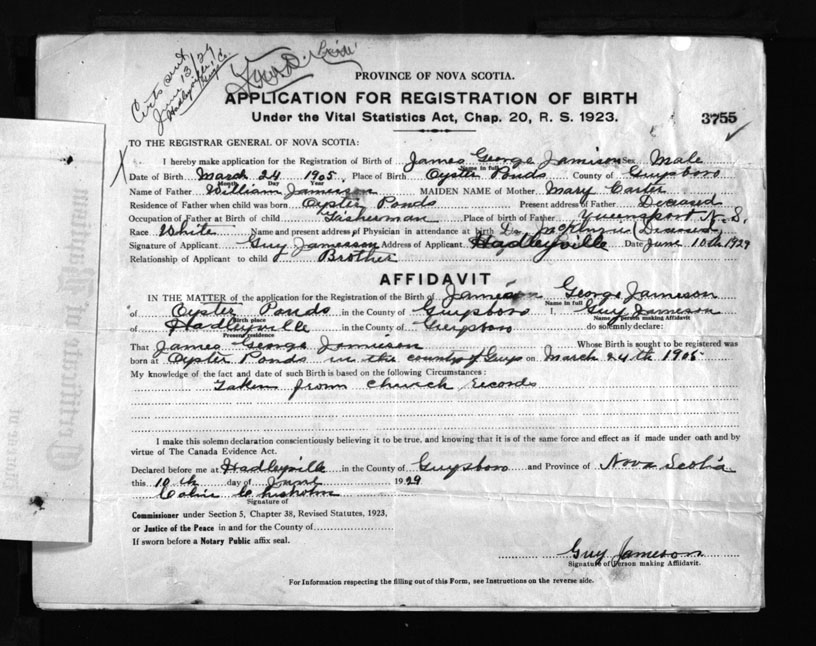 Certs sent
June 13/29
Hadleyville
Guys. Co.
PROVINCE OF NOVA SCOTIA.
APPLICATION FOR REGISTRATION OF BIRTH
Under the Vital Statistics Act, Chap. 20, R. S. 1923.
3755
TO THE REGISTRAR GENERAL OF NOVA SCOTIA:
I hereby make application for the Registration of Birth of James George Jamison Sex Male
Name in full
Date of Birth March 24 1905. Place of Birth Oyster Ponds County of Guysboro
Month Day Year
Name of Father William Jameson MAIDEN NAME of Mother Mary Carter
Residence of Father when child was born Oyster Ponds Present address of Father Deceased
Occupation of Father at Birth of child Fisherman Place of birth of Father Queensport N. S.
Race White Name and present address of Physician in attendance at birth Dr. McKenzie (Deceased)
Signature of Applicant Guy Jameson Address of Applicant Hadleyville Date June 10th 1929
Relationship of Applicant to child Brother
AFFIDAVIT
IN THE MATTER of the application for the Registration of the Birth of James George Jameson
Name in full
of Oyster Ponds in the County of Guysboro I, Guy Jameson
Birth place Name of person making Affidavit
of Hadleyville in the County of Guysboro do solemnly declare:
Present residence
That James George Jamieson Whose Birth is sought to be registered was
born at Oyster Ponds in the county of Guys on March 24th 1905
My knowledge of the fact and date of such Birth is based on the following Circumstances:
Taken from Church Records
I make this solemn declaration conscientiously believing it to be true, and knowing that it is of the same force and effect as if made under oath and by
virtue of The Canada Evidence Act.
Declared before me at Hadleyville in the County of Guysboro and Province of Nova Scotia
this 10th day of June 1929
Colin Chisholm
Signature of
Commissioner under Section 5, Chapter 38, Revised Statutes, 1923,
or Justice of the Peace in and for the County of
If sworn before a Notary Public affix seal.
Guy Jameson
Signature of Person making Affidavit.
For Information respecting the filling out of this Form, see Instructions on the reverse side.